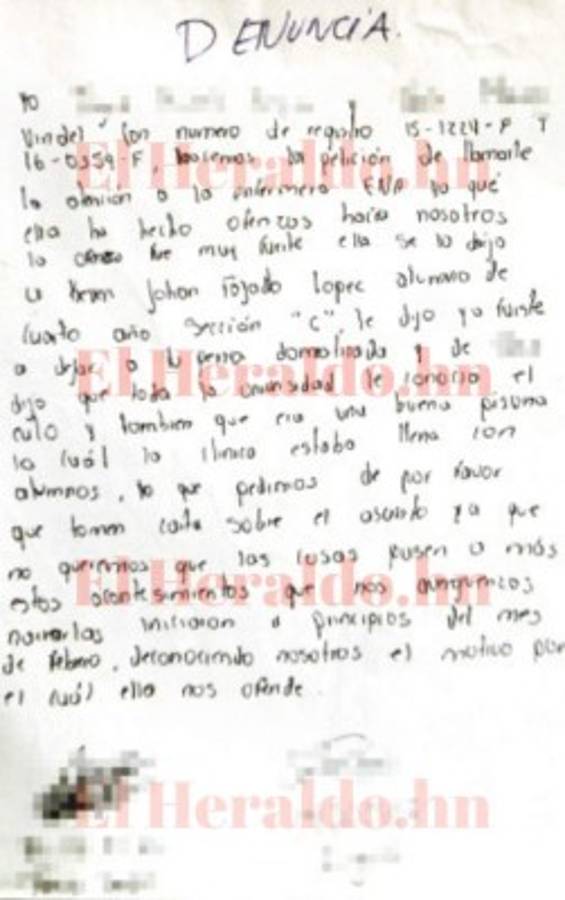 DENUNCIA.
Yo y
Vindel" con numero de registro 15-1224-F Y
16-0359-F, hacemos la petición de llamarle
la atención a la enfermera ENP ya qué
ella ha hecho ofenzas hacia nosotros
la fue muy fuerte ella se lo dijo
a Johan Lopec alumno de
cuarto año sección "C", le dijo ya fuiste
a dejar a tu perra domesticada y de
dijo que toda la universidad le conocia el
culo y tambien que era una buena pisuña
la cuál la clinica estaba llena con
alumnos, lo que pedimos de por favor
que tomen carta sobre el asunto ya que
no queremos que las cosas pasen a más
estos acontesimientos que nos
narrarlas iniciaron a principios del mes
de febrero, deconociendo nosotros el motivo por
el cuál ella nos ofende.
El Heraldo.hn
El Heraldo.hn
El Heraldo.hn
El Heraldo.hn